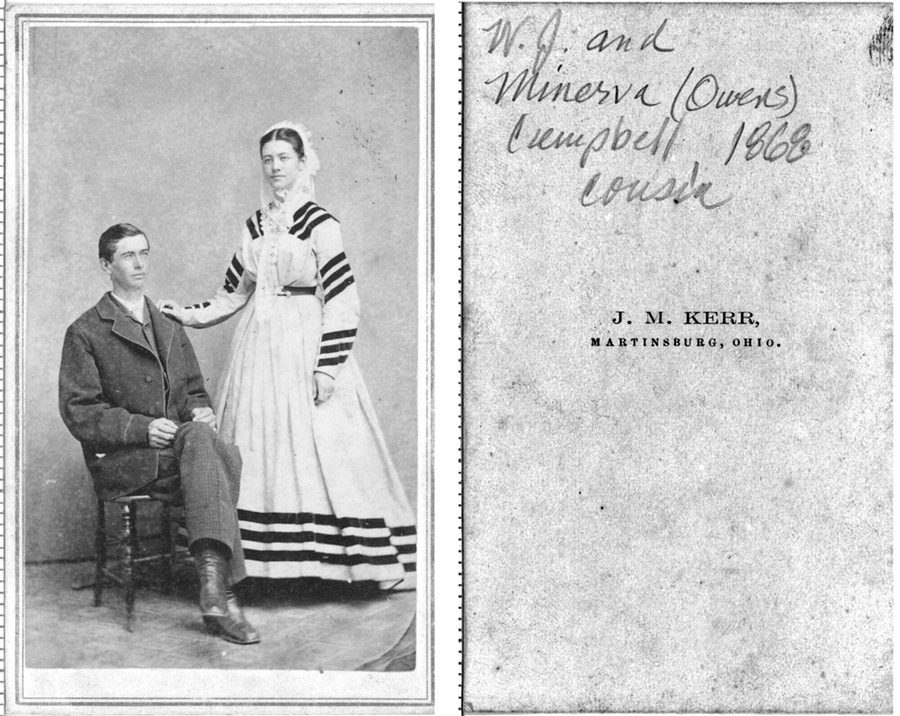 W. J. and
Minerva (Owens)
Campbell 1868
cousin
J. M. KERR,
MARTINSBURG, OHIO.